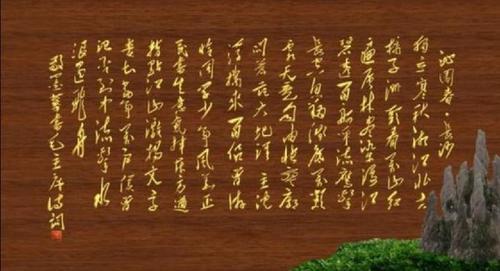 沁园春·长沙
独立寒秋湘江北去
橘子洲头看万山红
遍层林尽染漫江
碧透百舸争流鹰击
长空鱼翔浅底万类
霜天竞自由怅寥廓
问苍茫大地谁主沉
浮携来百侣曾游
恰同学少年风华正
茂书生意气挥斥方遒
指点江山激扬文字
粪土当年万户侯曾
记否到中流击水
浪遏飞舟
毛主席诗词